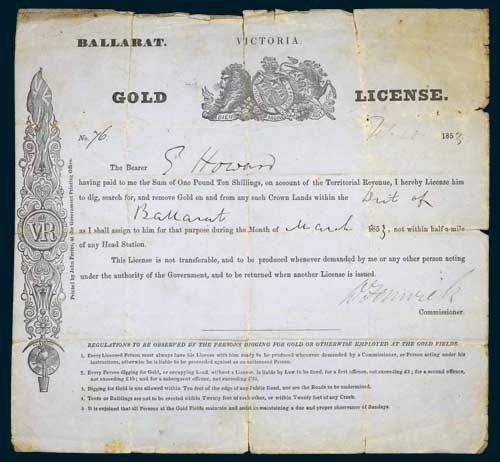 BALLARAT. VICTORIA.
GOLD LICENSE.
No. 76. 1853
The Bearer G Howard
having paid to me the Sum of One Pound Ten Shillings, on account of the Territorial Revenue, I hereby License him
to dig, search for, and remove Gold on and from any such Crown Lands within the
Ballarat
as I shall assign to him for that purpose during the Month of March 1853, not within half-a-mile
of any Head Station.
This License is not transferable, and to be produced whenever demanded by me or any other person acting
under the authority of the Government, and to be returned when another License is issued.
Commissioner.
VR
Printed by John Ferres, at the Government Printing Office.
REGULATIONS TO BE OBSERVED BY THE PERSONS DIGGING FOR GOLD OR OTHERWISE EMPLOYED AT THE GOLD FIELDS.
1. Every Licensed Person must always have his License with him ready to be produced whenever demanded by a Commissioner, or Person acting under his
instructions, otherwise he is liable to be proceeded against as an unlicensed Person.
2. Every Person digging for Gold, or occupying Land, without a License, is liable by Law to be fined, for a first offence, not exceeding £5; for a second offence,
not exceeding £15; and for a subsequent offence, not exceeding £30.
3. Digging for Gold is not allowed within Ten feet of the edge of any Public Road, nor are the Roads to be undermined.
4. Tents or Buildings are not to be erected within Twenty feet of each other, or within Twenty feet of any Creek.
5. It is enjoined that all Persons at the Gold Fields maintain and assist in maintaining a due and proper observance of Sundays.